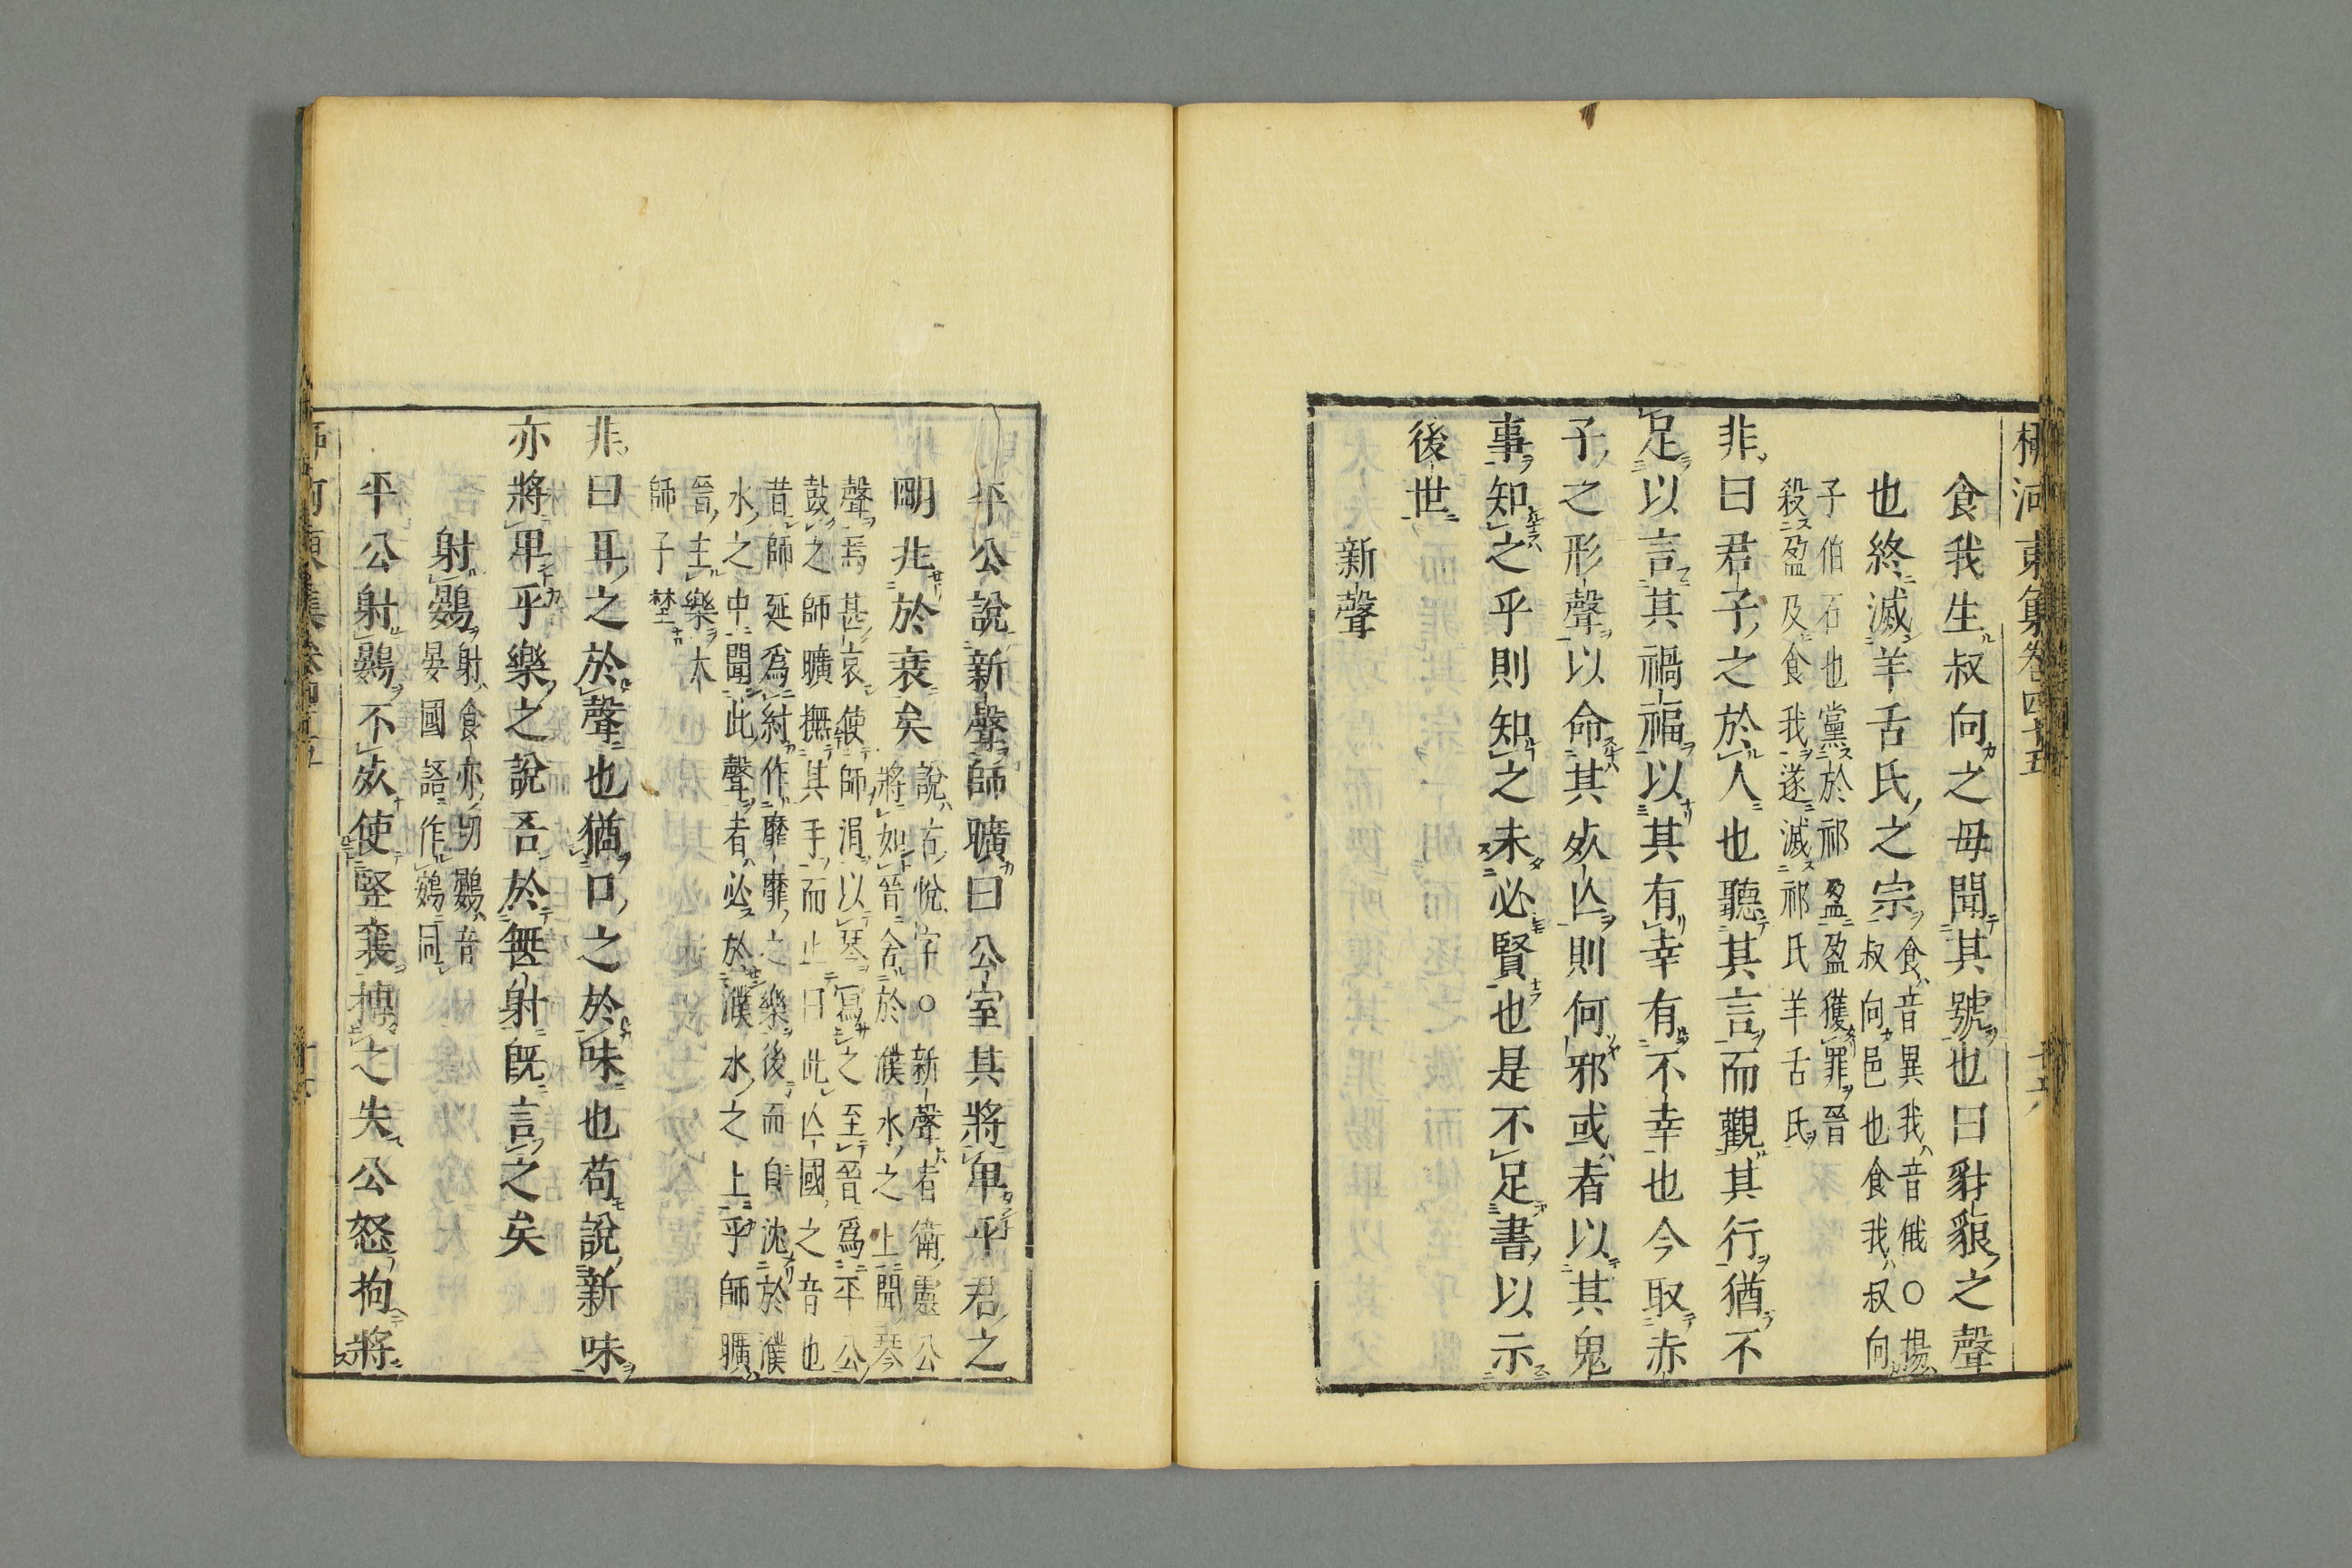 柳河東集卷四十五
食我生叔向之母聞其號也曰豺狼之聲
也終滅羊舌氏之宗
食音異我音俄○楊
叔向邑也食我叔向
子伯石也黨於祁盈盈獲罪晉
殺盈及食我遂滅祁氏羊舌氏
非曰君子之於人也聽其言而觀其行猶不
足以言其禍福以其有幸有不幸也今取赤
子之形聲以命其死亡則何邪或者以其鬼
事知之乎則知之未必賢也是不足書以示
後世
新聲
平公說新聲師曠曰公室其將卑乎君之
明兆於衰矣
說古悅字○新聲者衛靈公
將如晉舍於濮水之上聞琴
聲焉甚哀使師涓以琴寫之至晉爲平公
鼓之師曠撫其手而止曰此亡國之音也
昔師延爲紂作靡靡之樂後而自沈於濮
水之中聞此聲者必於濮水之上乎師曠
晉主樂太
師子埜
非曰耳之於聲也猶口之於味也苟說新味
亦將卑乎樂之說吾於無射旣言之矣
射鷃
射食亦切鷃音
晏國語作鴳同
平公射鷃不死使豎襄搏之失公怒拘將